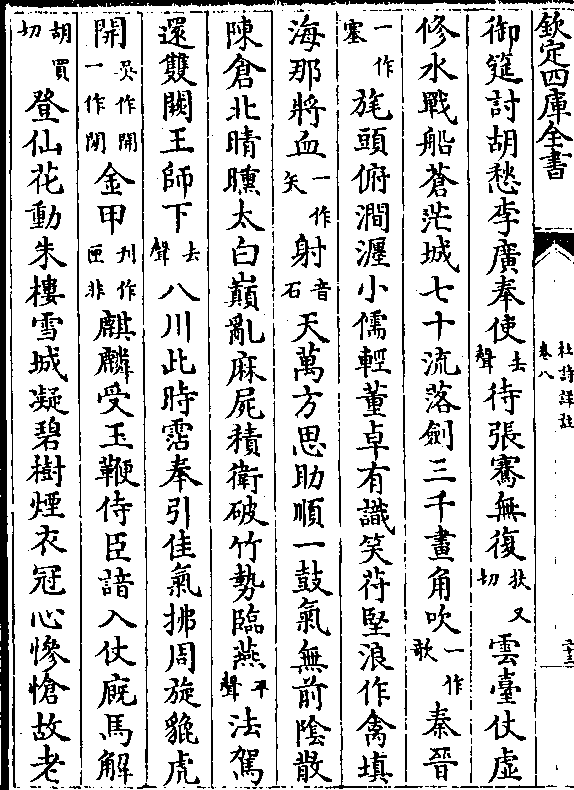 欽定四庫全書
杜詩詳註
卷八
二十三
御筵討胡愁李廣奉使去聲待張騫無復扶又切雲臺仗虛
修水戰船蒼茫城七十流落劍三千畫角吹一作歌秦晉
一作塞旄頭俯澗瀍小儒輕董卓有識笑苻堅浪作禽填
海那將血一作矢射音石天萬方思助順一鼓氣無前陰散
陳倉北晴曛太白巔亂麻屍積衛破竹勢臨燕平聲法駕
還雙闕王師下去聲八川此時霑奉引佳氣拂周旋貔虎
開吳作開一作閑金甲刊作匣非麒麟受玉鞭侍臣諳入仗廐馬解
胡買切登仙花動朱樓雪城凝碧樹煙衣冠心慘愴故老